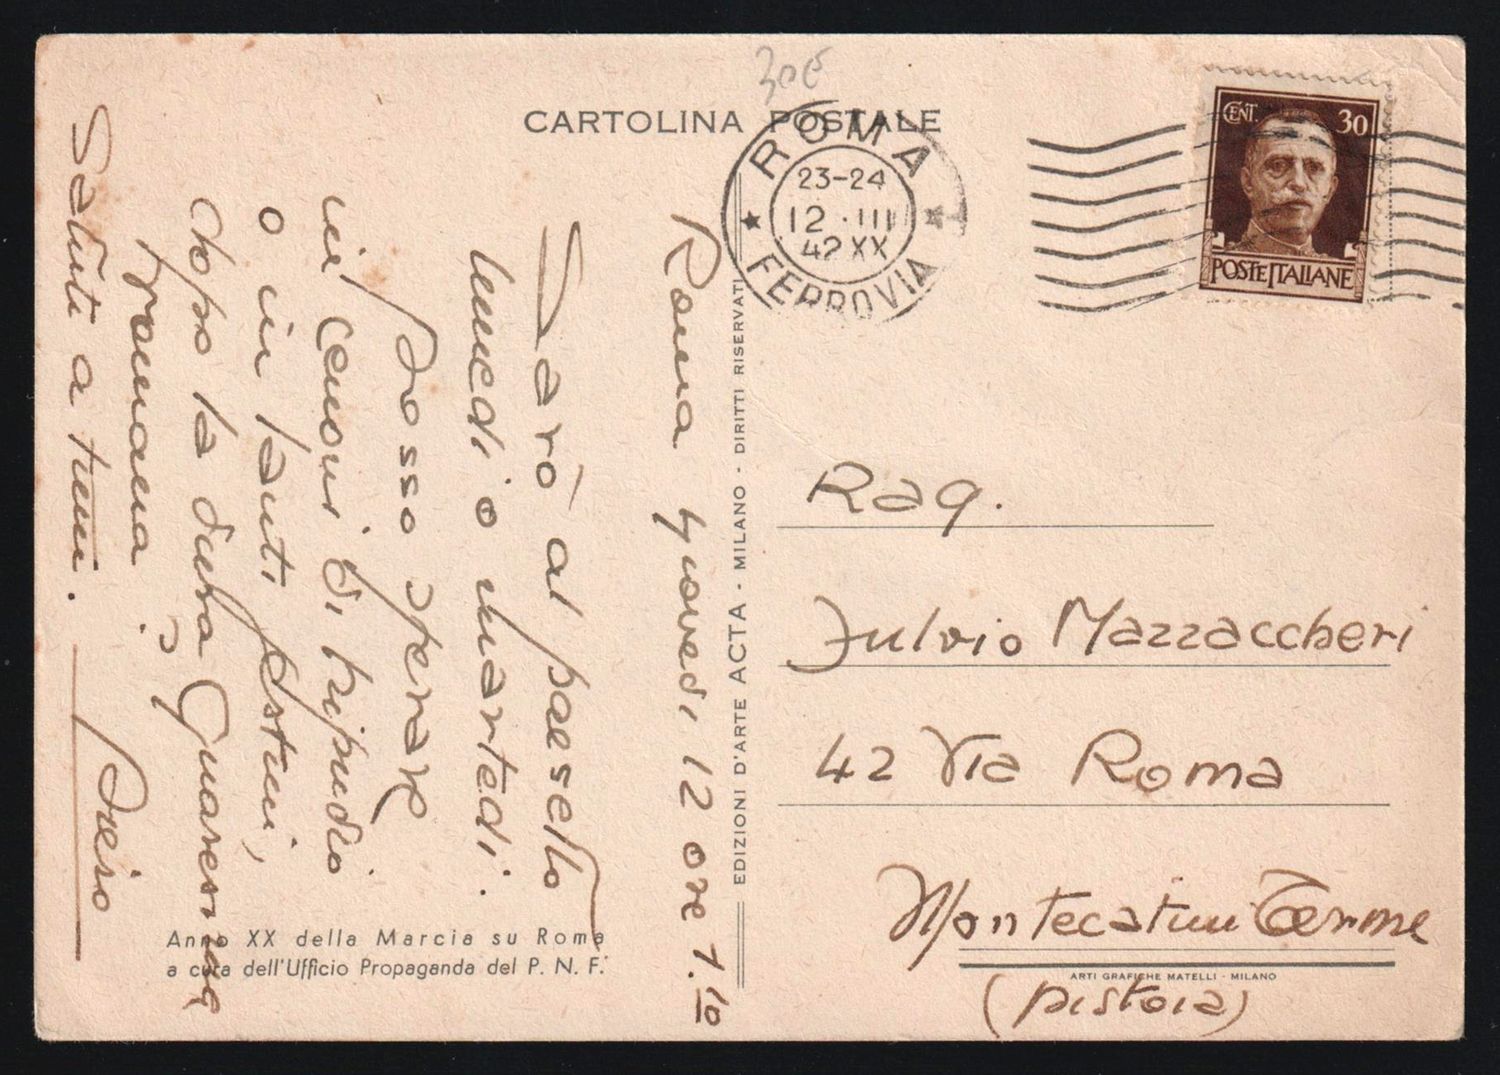 30€
CARTOLINA POSTALE
ROMA
23-24
12 · III
42 XX
FERROVIA
CENT. 30
POSTE ITALIANE
Roma giovedi 12 ore 7.10
Sarò al paesello
lunedi o martedi.
Posso sperare
in cenoni di tripudio
o in lauti festini,
dopo la dura Quaresima
romana?
Saluti a tutti.
EDIZIONI D'ARTE ACTA - MILANO - DIRITTI RISERVATI
Rag.
Fulvio Mazzaccheri
42 Via Roma
Montecatini Terme
(Pistoia)
Anno XX della Marcia su Roma
a cura dell'Ufficio Propaganda del P. N. F.
ARTI GRAFICHE MATELLI - MILANO